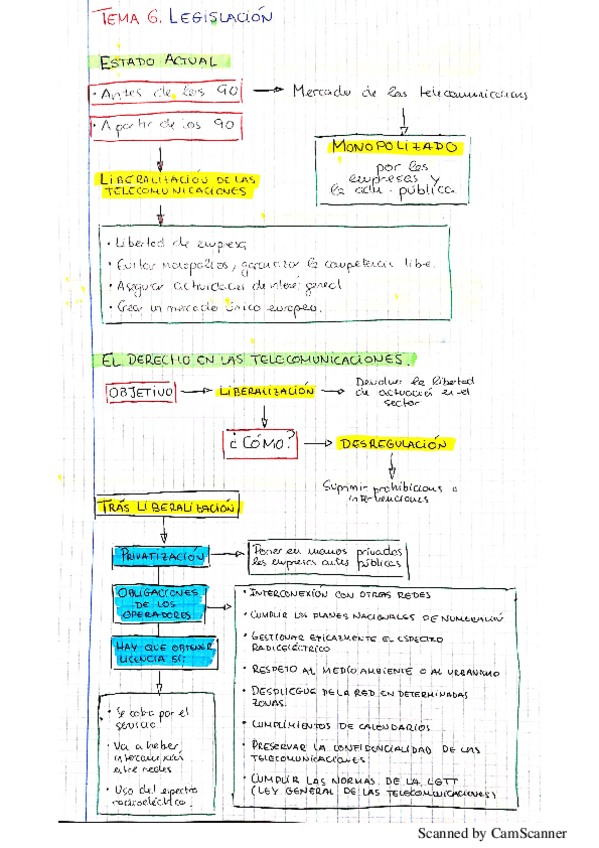 TEMA 6. LEGISLACIÓN
ESTADO ACTUAL
· Antes de los 90 → Mercado de las telecomunicaciones
· A partir de los 90
MONOPOLIZADO
por las
empresas y
la adm. pública.
LIBERALIZACIÓN DE LAS
TELECOMUNICACIONES
· Libertad de empresa
· Evitar monopolios, garantizar la competencia libre.
· Asegurar actividades de interés general
· Crear un mercado único europeo.
EL DERECHO EN LAS TELECOMUNICACIONES.
OBJETIVO → LIBERALIZACIÓN → Devolver la libertad
de actuación en el
sector
¿CÓMO? → DESREGULACIÓN
Suprimir prohibiciones o
intervenciones
TRAS LIBERALIZACIÓN
PRIVATIZACIÓN → Poner en manos privadas
las empresas antes públicas
OBLIGACIONES
DE LOS
OPERADORES
· INTERCONEXIÓN CON OTRAS REDES
· CUMPLIR LOS PLANES NACIONALES DE NUMERACIÓN
· GESTIONAR EFICAZMENTE EL ESPECTRO
RADIOELÉCTRICO
· RESPETO AL MEDIO AMBIENTE O AL URBANISMO
· DESPLIEGUE DE LA RED EN DETERMINADAS
ZONAS.
· CUMPLIMIENTOS DE CALENDARIOS
· PRESERVAR LA CONFIDENCIALIDAD DE LAS
TELECOMUNICACIONES
· CUMPLIR LAS NORMAS DE LA LGTT
(LEY GENERAL DE LAS TELECOMUNICACIONES)
HAY QUE OBTENER
LICENCIA SI:
· Se cobra por el
servicio
· Va a haber
interconexión
entre redes
· Uso del espectro
radioeléctrico.
Scanned by CamScanner